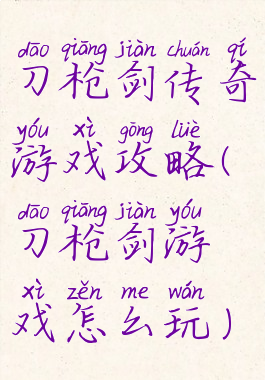 dāo qiāng jiàn chuán qí
刀枪剑传奇
yóu xì gōng lüè
游戏攻略(
dāo qiāng jiàn yóu
刀枪剑游
xì zěn me wán
戏怎么玩)